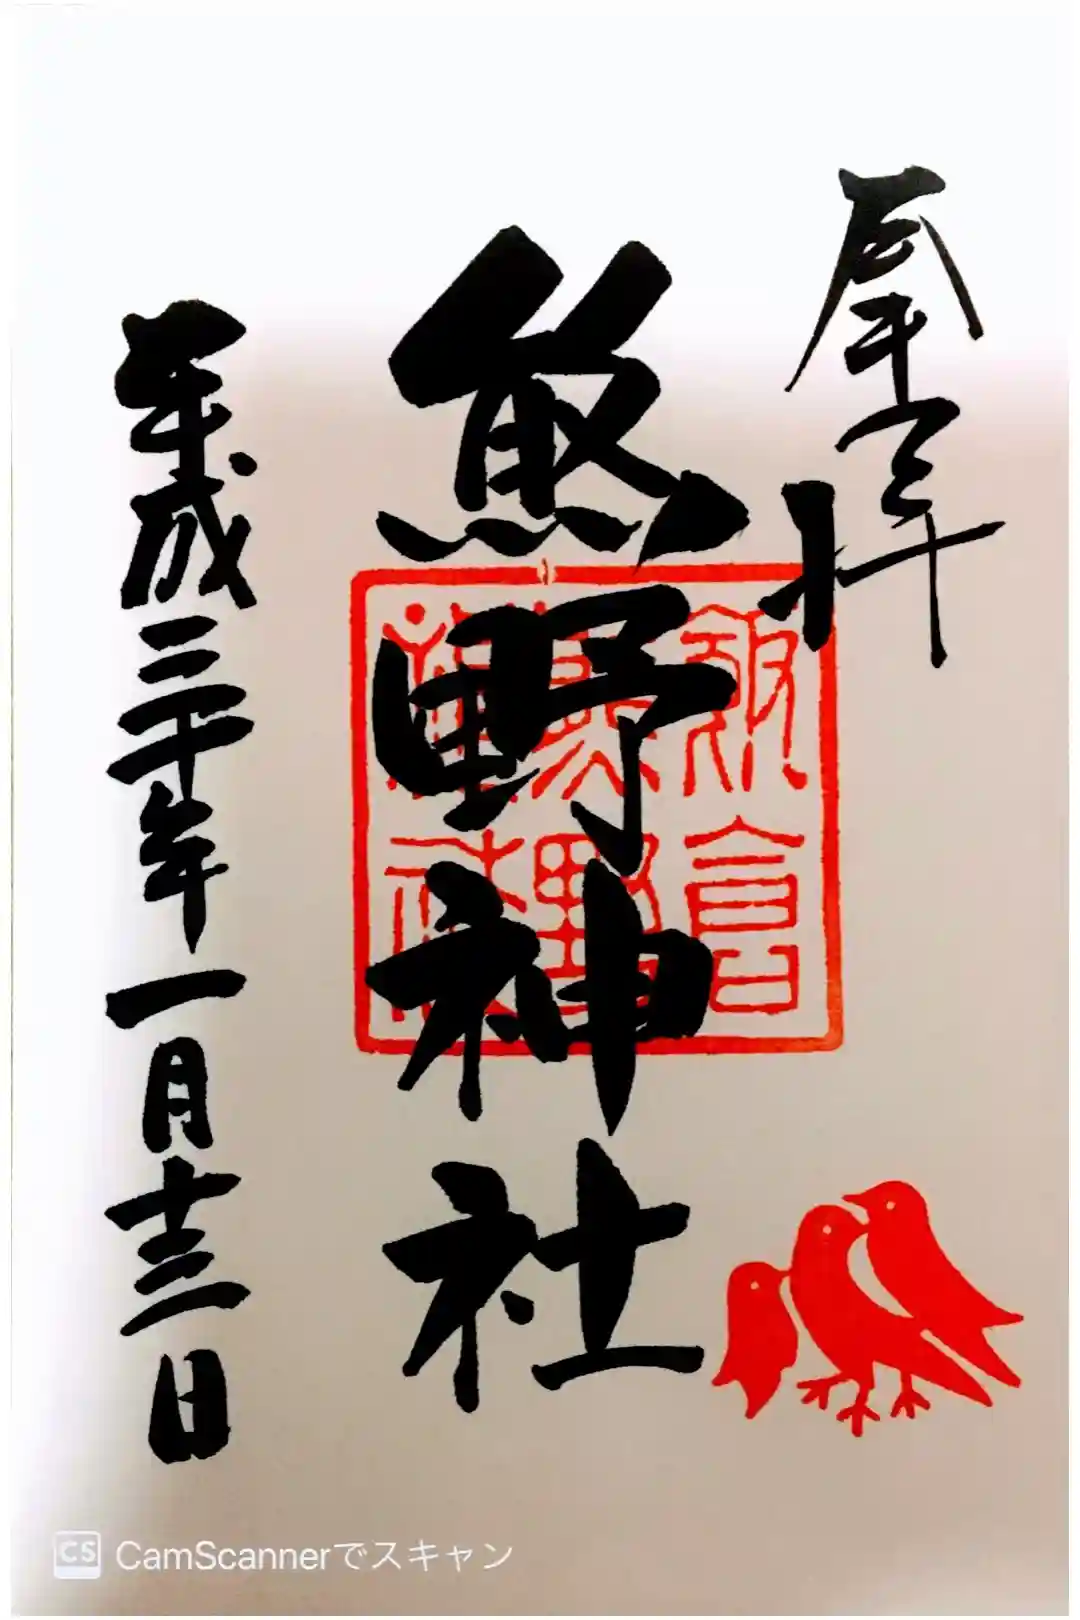 奉拝
熊野神社
飯倉
熊野
神社
平成三十年一月十三日
CS CamScannerでスキャン